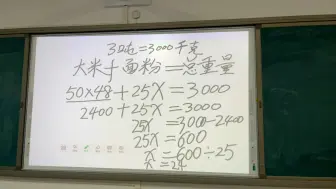 3吨=3000千克
大米+面粉=总重量
50×48+25X=3000
2400+25X=3000
25X=3000-2400
25X=600
X=600÷25
X=24